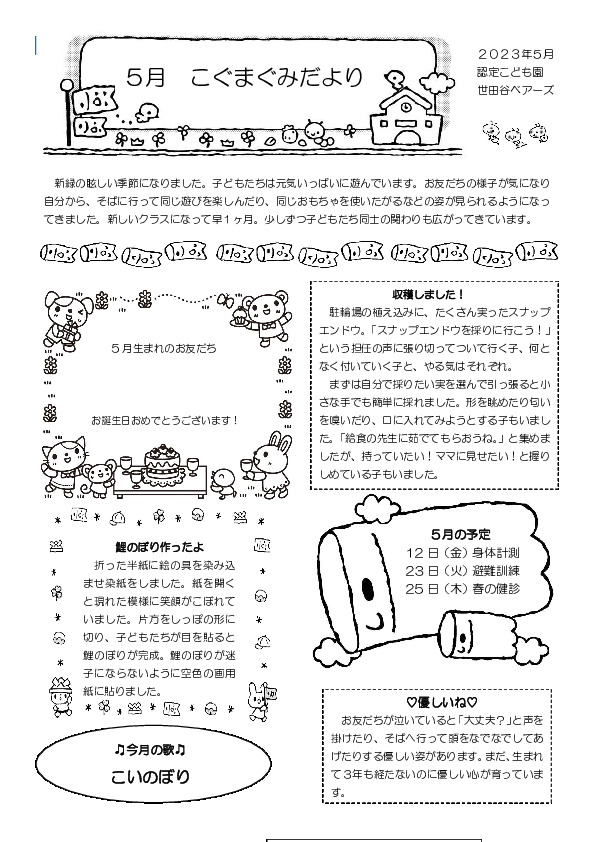 5月 こぐまぐみだより
2023年5月
認定こども園
世田谷ベアーズ
新緑の眩しい季節になりました。子どもたちは元気いっぱいに遊んでいます。お友だちの様子が気になり
自分から、そばに行って同じ遊びを楽しんだり、同じおもちゃを使いたがるなどの姿が見られるようになっ
てきました。新しいクラスになって早1ヶ月。少しずつ子どもたち同士の関わりも広がってきています。
5月生まれのお友だち
お誕生日おめでとうございます！
収穫しました！
駐輪場の植え込みに、たくさん実ったスナップ
エンドウ。「スナップエンドウを採りに行こう！」
という担任の声に張り切ってついて行く子、何と
なく付いていく子と、やる気はそれぞれ。
まずは自分で採りたい実を選んで引っ張ると小
さな手でも簡単に採れました。形を眺めたり匂い
を嗅いだり、口に入れてみようとする子もいまし
た。「給食の先生に茹でてもらおうね。」と集めま
したが、持っていたい！ママに見せたい！と握り
しめている子もいました。
鯉のぼり作ったよ
折った半紙に絵の具を染み込
ませ染紙をしました。紙を開く
と現れた模様に笑顔がこぼれて
いました。片方をしっぽの形に
切り、子どもたちが目を貼ると
鯉のぼりが完成。鯉のぼりが迷
子にならないように空色の画用
紙に貼りました。
5月の予定
12日（金）身体計測
23日（火）避難訓練
25日（木）春の健診
♫今月の歌♫
こいのぼり
♡優しいね♡
お友だちが泣いていると「大丈夫？」と声を
掛けたり、そばへ行って頭をなでなでしてあ
げたりする優しい姿があります。まだ、生まれ
て3年も経たないのに優しい心が育っていま
す。